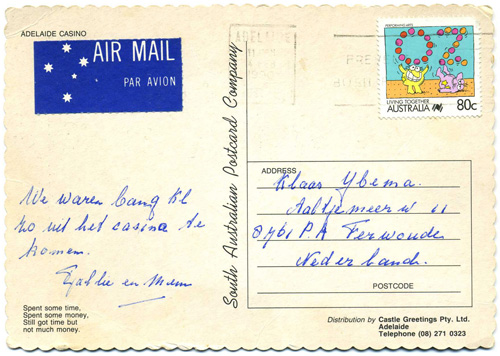 ADELAIDE CASINO
AIR MAIL
PAR AVION
ADELAIDE
PERFORMING ARTS
LIVING TOGETHER
AUSTRALIA 80c
South Australian Postcard Company
We waren bang kl
zo uit het casino te
komen.
en Mem
ADDRESS
Klaas Ybema.
Aaltjemeer w 11
8761 P.A Ferwoude
Nederland.
POSTCODE
Spent some time,
Spent some money,
Still got time but
not much money.
Distribution by Castle Greetings Pty. Ltd.
Adelaide
Telephone (08) 271 0323